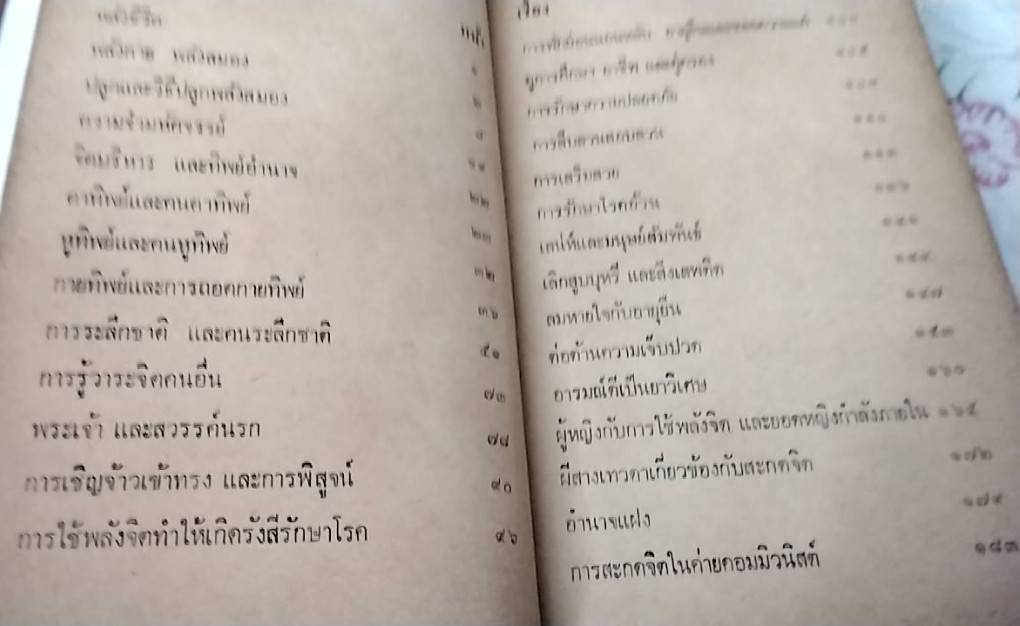 พลังจิต
หน้า
พลังกาย พลังสมอง ๑
ปลุกและวิธีปลุกพลังสมอง
ความจำมหัศจรรย์
จิตบริหาร และทิพย์อำนาจ
ตาทิพย์และคนตาทิพย์ ๒๒
หูทิพย์และคนหูทิพย์
กายทิพย์และการถอดกายทิพย์ ๓๒
การระลึกชาติ และคนระลึกชาติ ๓๖
การรู้วาระจิตคนอื่น ๕๑
พระเจ้า และสวรรค์นรก ๗๓
การเชิญจ้าวเข้าทรง และการพิสูจน์ ๗๘
การใช้พลังจิตทำให้เกิดรังสีรักษาโรค ๙๐
๙๖
เรื่อง
ดูการศึกษา อาชีพ และคู่ครอง
การรักษาความปลอดภัย
การสืบสวนสอบสวน
การเสริมสวย
การรักษาโรคอ้วน
เสน่ห์และมนุษย์สัมพันธ์
เลิกสูบบุหรี่ และสิ่งเสพติด
ลมหายใจกับอายุยืน ๑๔๗
ต่อต้านความเจ็บปวด ๑๕๓
อารมณ์ที่เป็นยาวิเศษ ๑๖๐
ผู้หญิงกับการใช้พลังจิต และยอดหญิงกำลังภายใน ๑๖๕
ผีสางเทวดาเกี่ยวข้องกับสะกดจิต ๑๗๒
อำนาจแฝง
การสะกดจิตในค่ายคอมมิวนิสต์ ๑๘๓